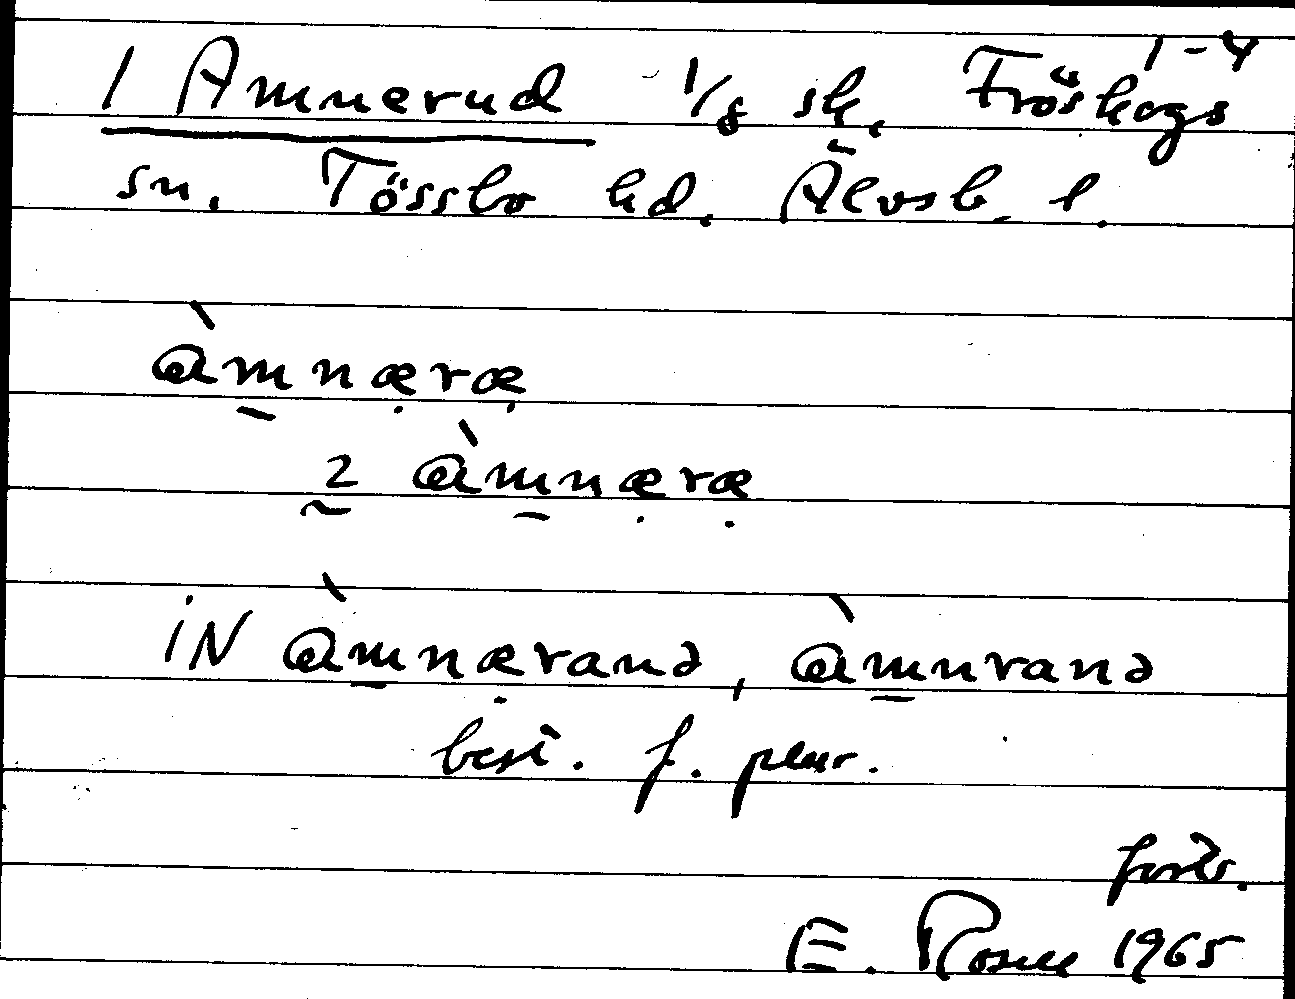 1-4
1 Amnerud 1/8 sk. Fröskogs
sn. Tössbo hd. Älvsb. l.
àm̱næ̣ræ̣
2 àm̱næ̣ræ̣
iN àm̱næ̣ranə, àm̱nranə
best. f. plur.
forts.
E. Rosell 1965